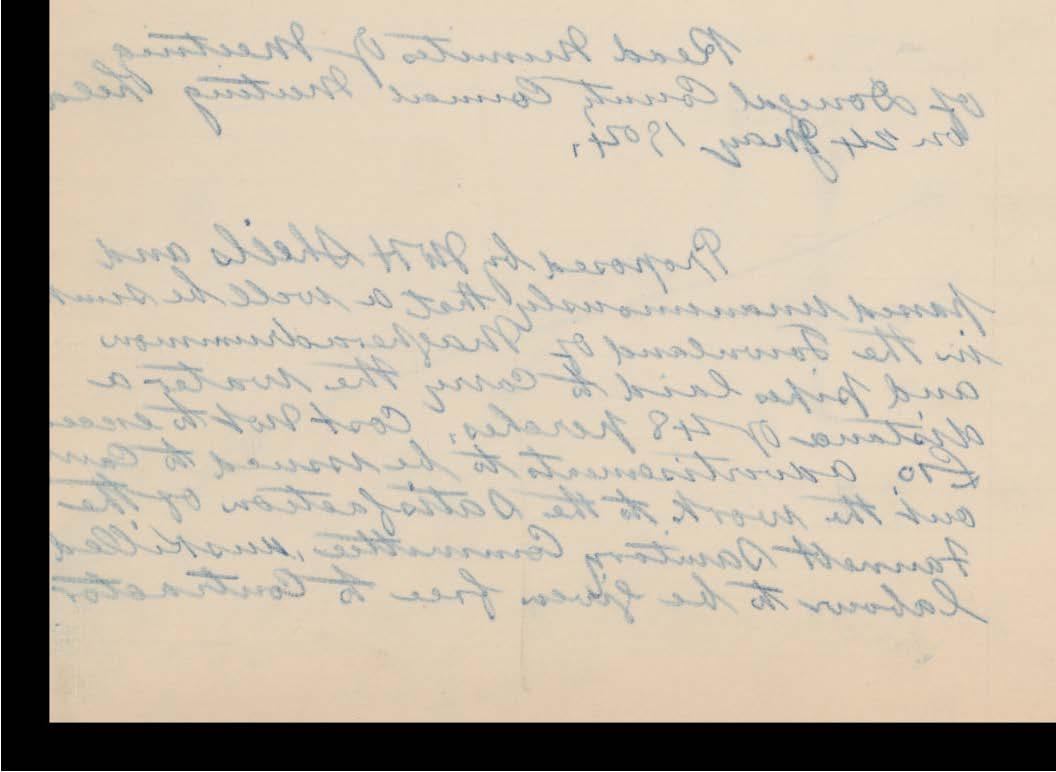 Read Minutes of Meeting
of Donegal County Council Meeting held
on 24 May 1904.
Proposed by WH Sheils and
passed unanimously that a well be sunk
in the Townland of Magherandrummon
and pipes laid to carry the water a
distance of 48 perches. Cost not to excee
advertisements to be issued to carr
out the work to the satisfaction of the
Fannett Sanitary Committee. unskilled
labour to be given free to Contractor